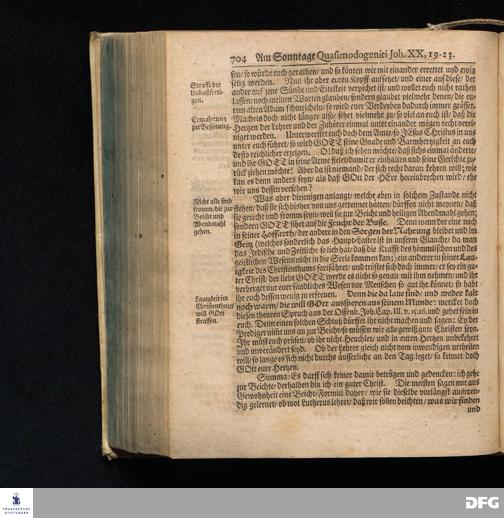 704 Am Sonntage Quasimodogeniti Joh. XX, 19-23.
sen/ so würde euch gerathen/ und so könten wir mit einander errettet und ewig
selig werden. Nun ihr aber euren Kopff aufsetzet/ und einer auf diese/ der
ander auf jene Sünde und Eitelkeit verpichet ist/ und wollet euch nicht rathen
lassen/ noch meinen Worten glauben/ sondern glaubet vielmehr denen/ die eu-
rem alten Adam schmeicheln/ so wird euer Verderben dadurch immer grösser.
Machets doch nicht länger also/ sehet vielmehr zu/ so viel an euch ist/ daß die
Hertzen der Lehrer und der Zuhörer einmal unter einander mögen recht verei-
niget werden. Unterwerffet euch doch dem Amte/ so JEsus Christus in uns
unter euch führet/ so wird GOTT seine Gnade und Barmhertzigkeit an euch
desto reichlicher erzeigen. O! daß ich sehen möchte/ daß sichs einmal änderte/
und ihr GOTT in seine Arme fielet/ damit er einhalten und seine Gerichte zu-
rück ziehen möchte! Aber da ist niemand/ der sich recht daran kehren will; wie
kan es denn anders seyn/ als daß GOtt der HErr hereinbrechen wird/ ehe
wir uns dessen versehen?
Was aber diejenigen anlangt/ welche eben in solchem Zustande nicht
stehen/ daß sie sich bisher von uns getrennet hätten/ dürffen nicht meynen/ daß
sie gerecht und fromm seyn/ weil sie zur Beicht und heiligen Abendmahl gehen;
sondern GOTT sihet auf die Frucht der Busse. Denn wenn der eine noch
in seiner Hoffarth/ der andere in den Sorgen der Nahrung bleibet und im
Geitz (welches sonderlich das Haupt-Laster ist in unserm Glaucha/ da man
das Irdische und Zeitliche so lieb hat/ daß die Krafft des himmlischen und des
geistlichen Wesens nicht in die Seele kommen kan;) ein anderer in seiner Lau-
igkeit des Christenthums fortfähret/ und tröstet sich doch immer/ er sey ein gu-
ter Christ/ der liebe GOTT werde es nicht so genau mit ihm nehmen/ und ihr
verberget nur euer sündliches Wesen vor Menschen so gut ihr könnet/ so habt
ihr euch dessen wenig zu erfreuen. Denn die da laue sind/ und weder kalt
noch warm/ die will GOtt ausspeyen aus seinem Munde: mercket doch
diesen theuren Spruch aus der Offenb. Joh. Cap. III. v. 15. 16. und gehet sein in
euch. Denn einen solchen Schluß dürffet ihr nicht machen und sagen: Ey der
Prediger nimt uns an zur Beicht/ so müssen wir alle gewiß gute Christen seyn.
Ihr müst euch prüfen/ ob ihr nicht Heuchler/ und in euren Hertzen unbekehret
und unverändert seyd. Ob der Lehrer gleich nicht vom inwendigen urtheilen
will/ so lange es sich nicht durchs äusserliche an den Tag leget/ so kennet doch
GOtt eure Hertzen.
Summa: Es darff sich keiner damit betrügen und gedencken: ich gehe
zur Beichte/ derhalben bin ich ein guter Christ. Die meisten sagen nur aus
Gewohnheit eine Beicht-Formul daher/ wie sie dieselbe vorlängst auswen-
dig gelernet/ ob wol Lutherus lehret/ daß wir sollen beichten/ was wir finden
und
Straffe der
Unbußferti-
gen.
Ermahnung
zur Besserung.
Nicht alle sind
fromm die zur
Beicht und
Abendmahl
gehen.
Lauigkeit im
Christenthum
will GOtt
straffen.
FRANCKESCHE
STIFTUNGEN
DFG